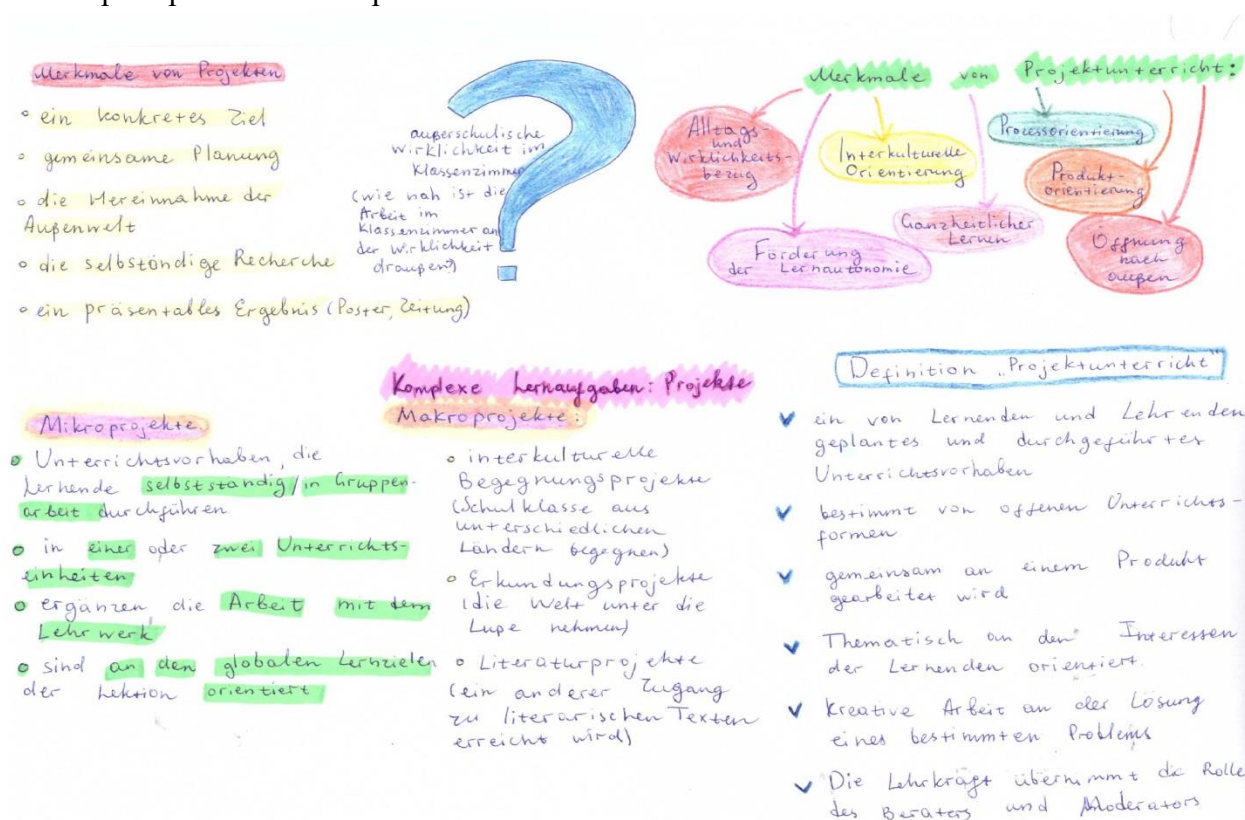 Merkmale von Projekten
ein konkretes Ziel
gemeinsame Planung
die Hereinnahme der
Außenwelt
die selbständige Recherche
ein präsentables Ergebnis (Poster, Zeitung)
außerschulische
Wirklichkeit im
Klassenzimmer
(wie nah ist die
Arbeit im
Klassenzimmer an
der Wirklichkeit
draußen?)
?
Merkmale von Projektunterricht:
Alltags
und
Wirklichkeits-
bezug
Förderung
der Lernautonomie
Interkulturelle
Orientierung
Ganzheitlicher
Lernen
Prozessorientierung
Produkt-
orientierung
Öffnung
nach
außen
Komplexe Lernaufgaben: Projekte
Mikroprojekte.
Unterrichtsvorhaben, die
Lernende selbstständig/in Gruppen-
arbeit durchführen
in einer oder zwei Unterrichts-
einheiten
ergänzen die Arbeit mit dem
Lehrwerk
sind an den globalen Lernzielen
der Lektion orientiert
Makroprojekte:
interkulturelle
Begegnungsprojekte
(Schulklasse aus
unterschiedlichen
Ländern begegnen)
Erkundungsprojekte
(die Welt unter die
Lupe nehmen)
Literaturprojekte
(ein anderer Zugang
zu literarischen Texten
erreicht wird)
Definition „Projektunterricht"
ein von Lernenden und Lehrenden
geplantes und durchgeführtes
Unterrichtsvorhaben
bestimmt von offenen Unterrichts-
formen
gemeinsam an einem Produkt
gearbeitet wird
Thematisch an den Interessen
der Lernenden orientiert.
kreative Arbeit an der Lösung
eines bestimmten Problems
Die Lehrkraft übernimmt die Rolle
des Beraters und Moderators